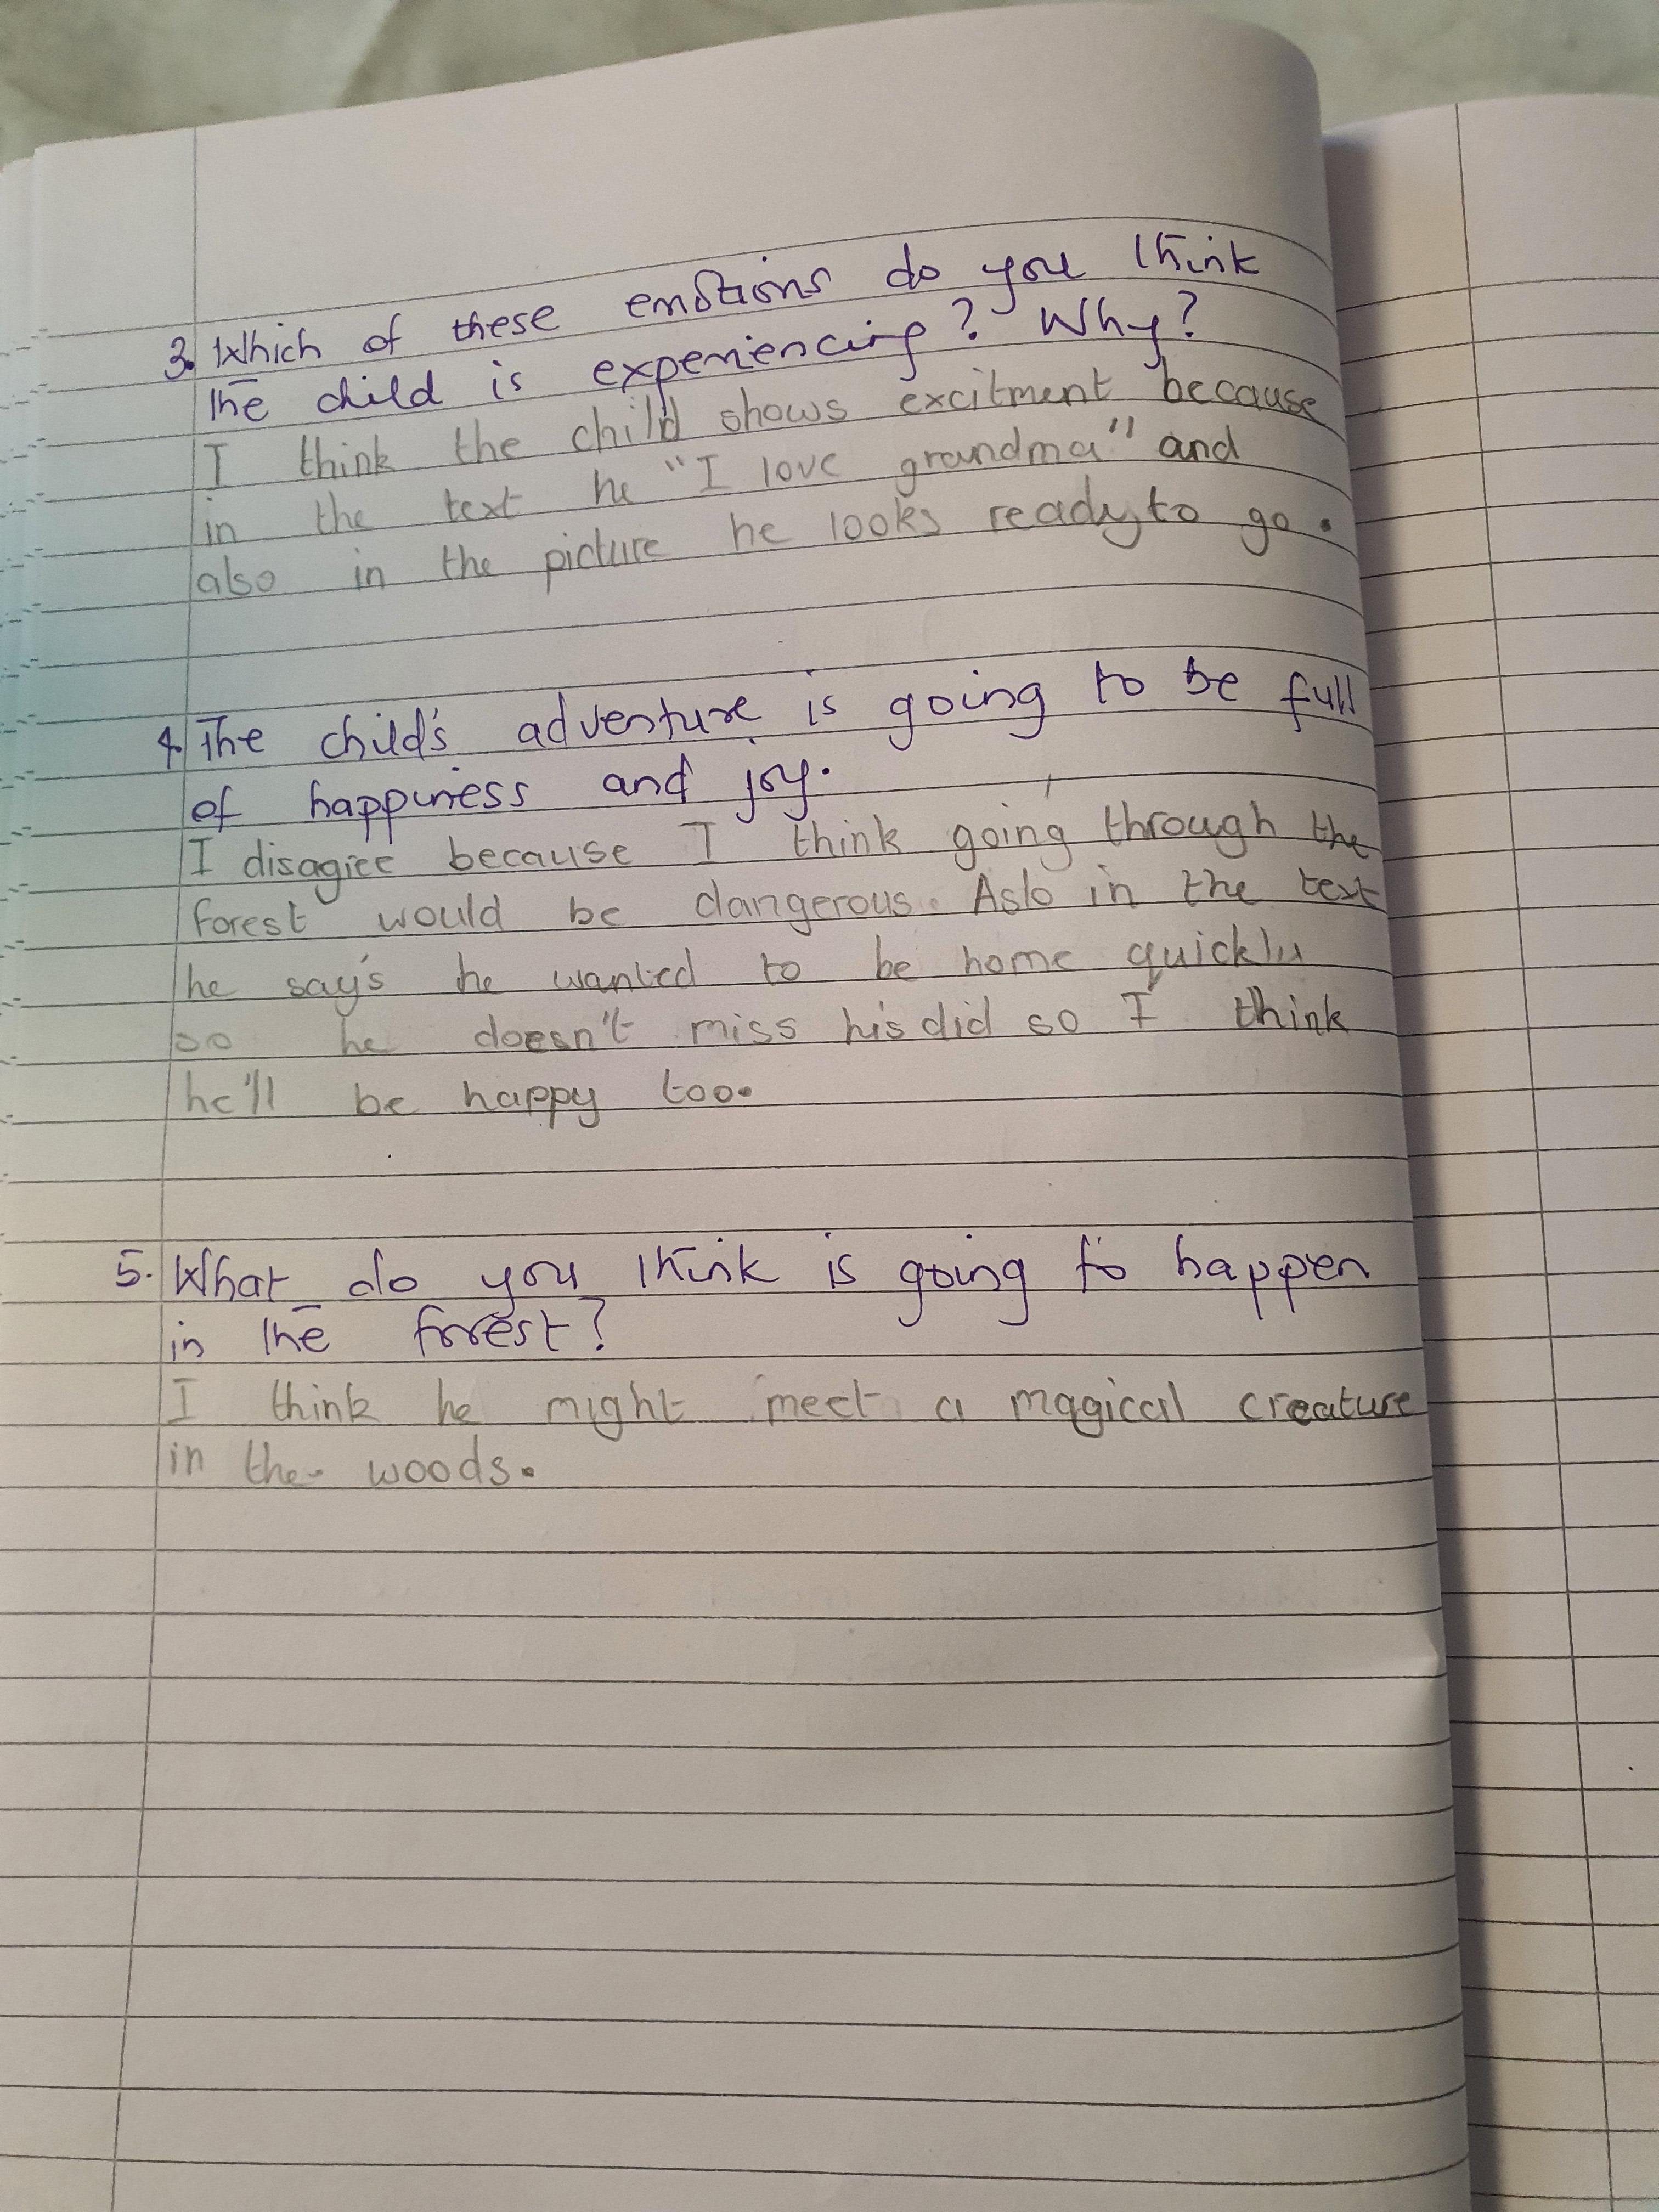 3. Which of these emotions do you think
the child is experiencing? Why?
I think the child shows excitment because
in the text he "I love grandma" and
also in the picture he looks ready to go.
4. The child's adventure is going to be full
of happiness and joy.
I disagree because I think going through the
forest would be dangerous. Aslo in the text
he say's he wanted to be home quickly
so he doesn't miss his did so I think
he'll be happy too.
5. What do you think is going to happen
in the forest?
I think he might meet a magical creature
in the woods.